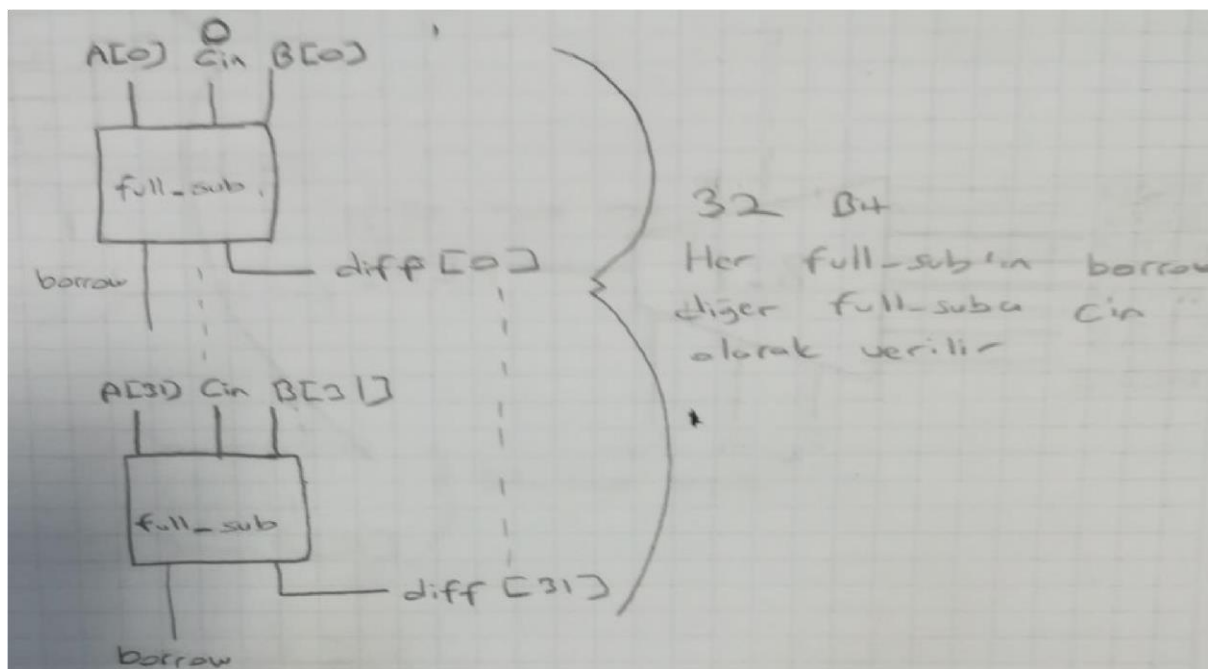 0
A[0] Cin B[0]
full_sub
borrow
diff [0]
A[31] Cin B[31]
full_sub
diff [31]
borrow
32 Bit
Her full_sub'ın borrow
diğer full_suba Cin
olarak verilir